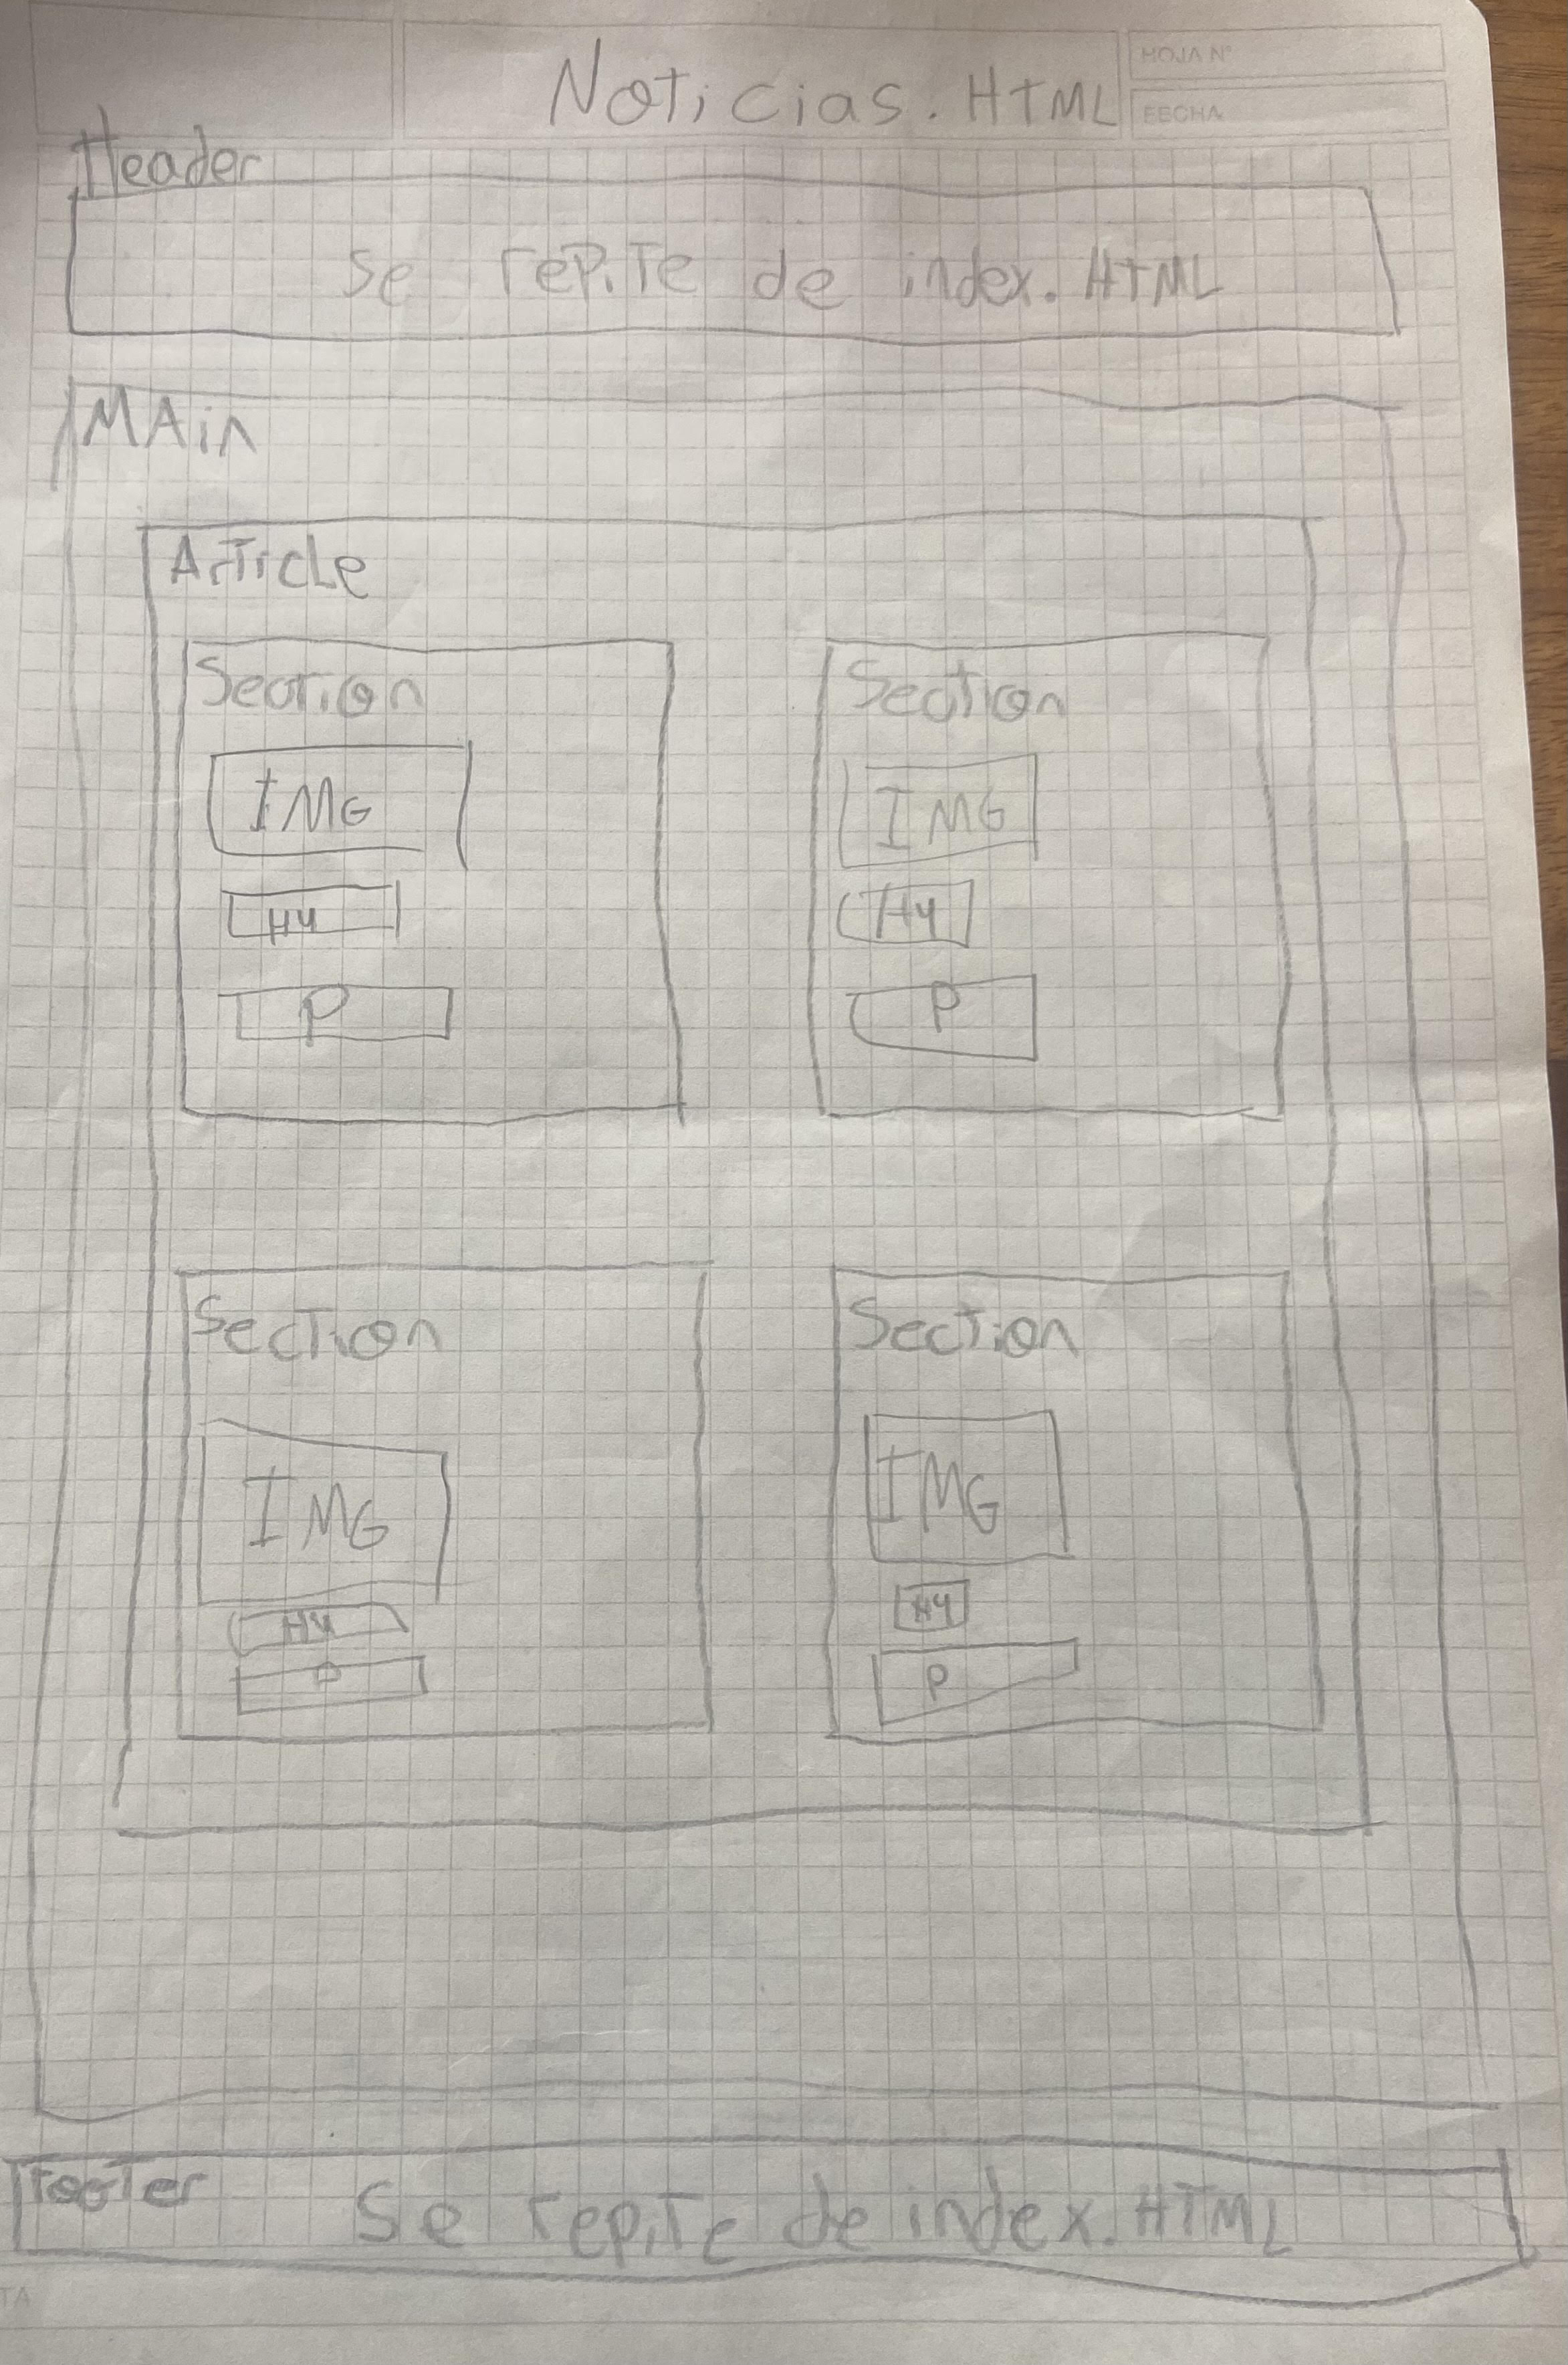 Noticias.HTML
HOJA N°
FECHA
Header
Se repite de index.HTML
MAin
Article
Section
Section
IMG
IMG
H4
H4
P
P
Section
Section
IMG
IMG
H4
H4
P
P
Footer
Se repite de index.HTML
TA